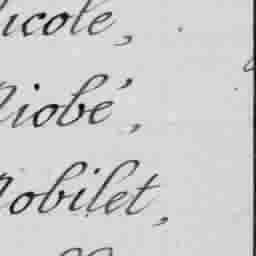 icole,
Niobé,
Nobilet,